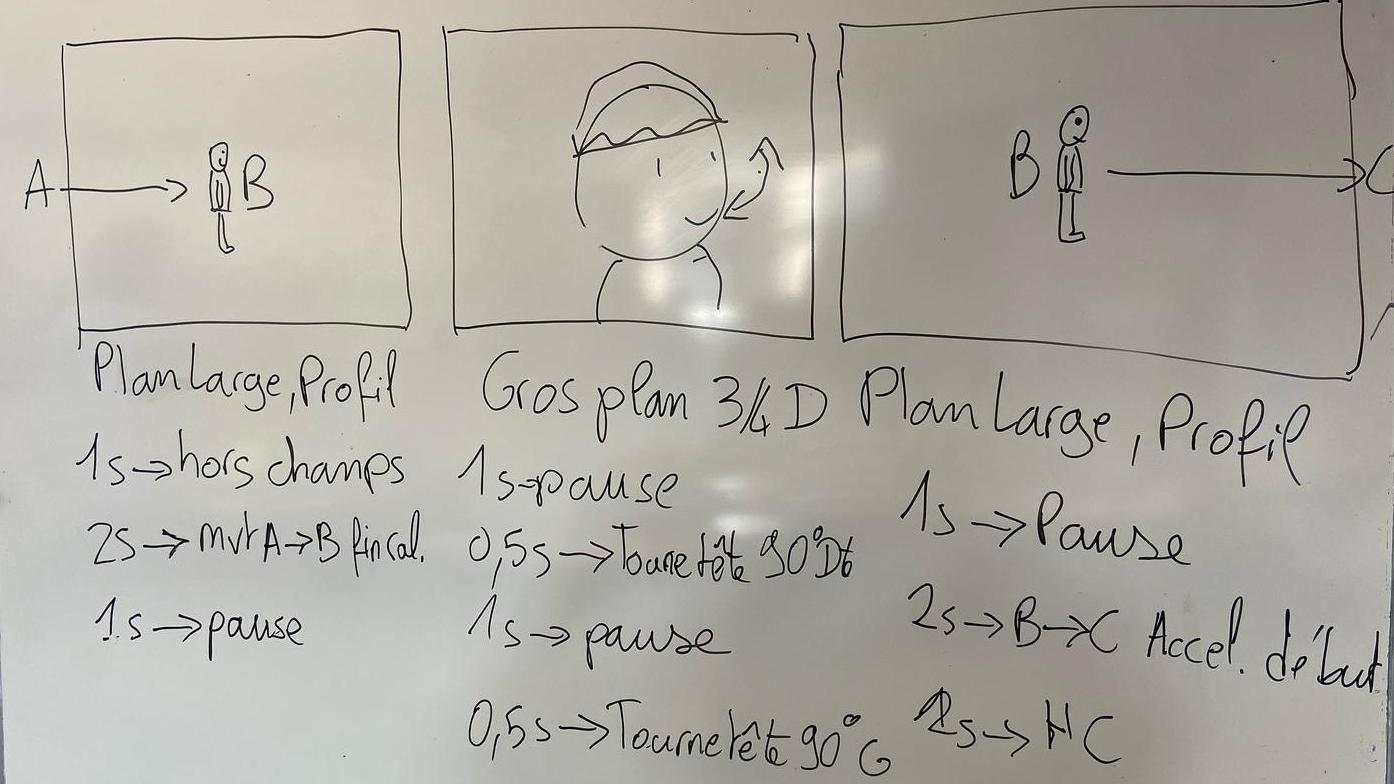 A
B
B
C
Plan Large, Profil
1s→hors champs
2s→mvt A→B fin
1s→pause
Gros plan 3/4 D
1s→pause
0,5s→Tourne tête 90° Dt
1s→pause
0,5s→Tourne tête 90° G
Plan Large, Profil
1s→Pause
2s→B→C Accel. début
s→HC